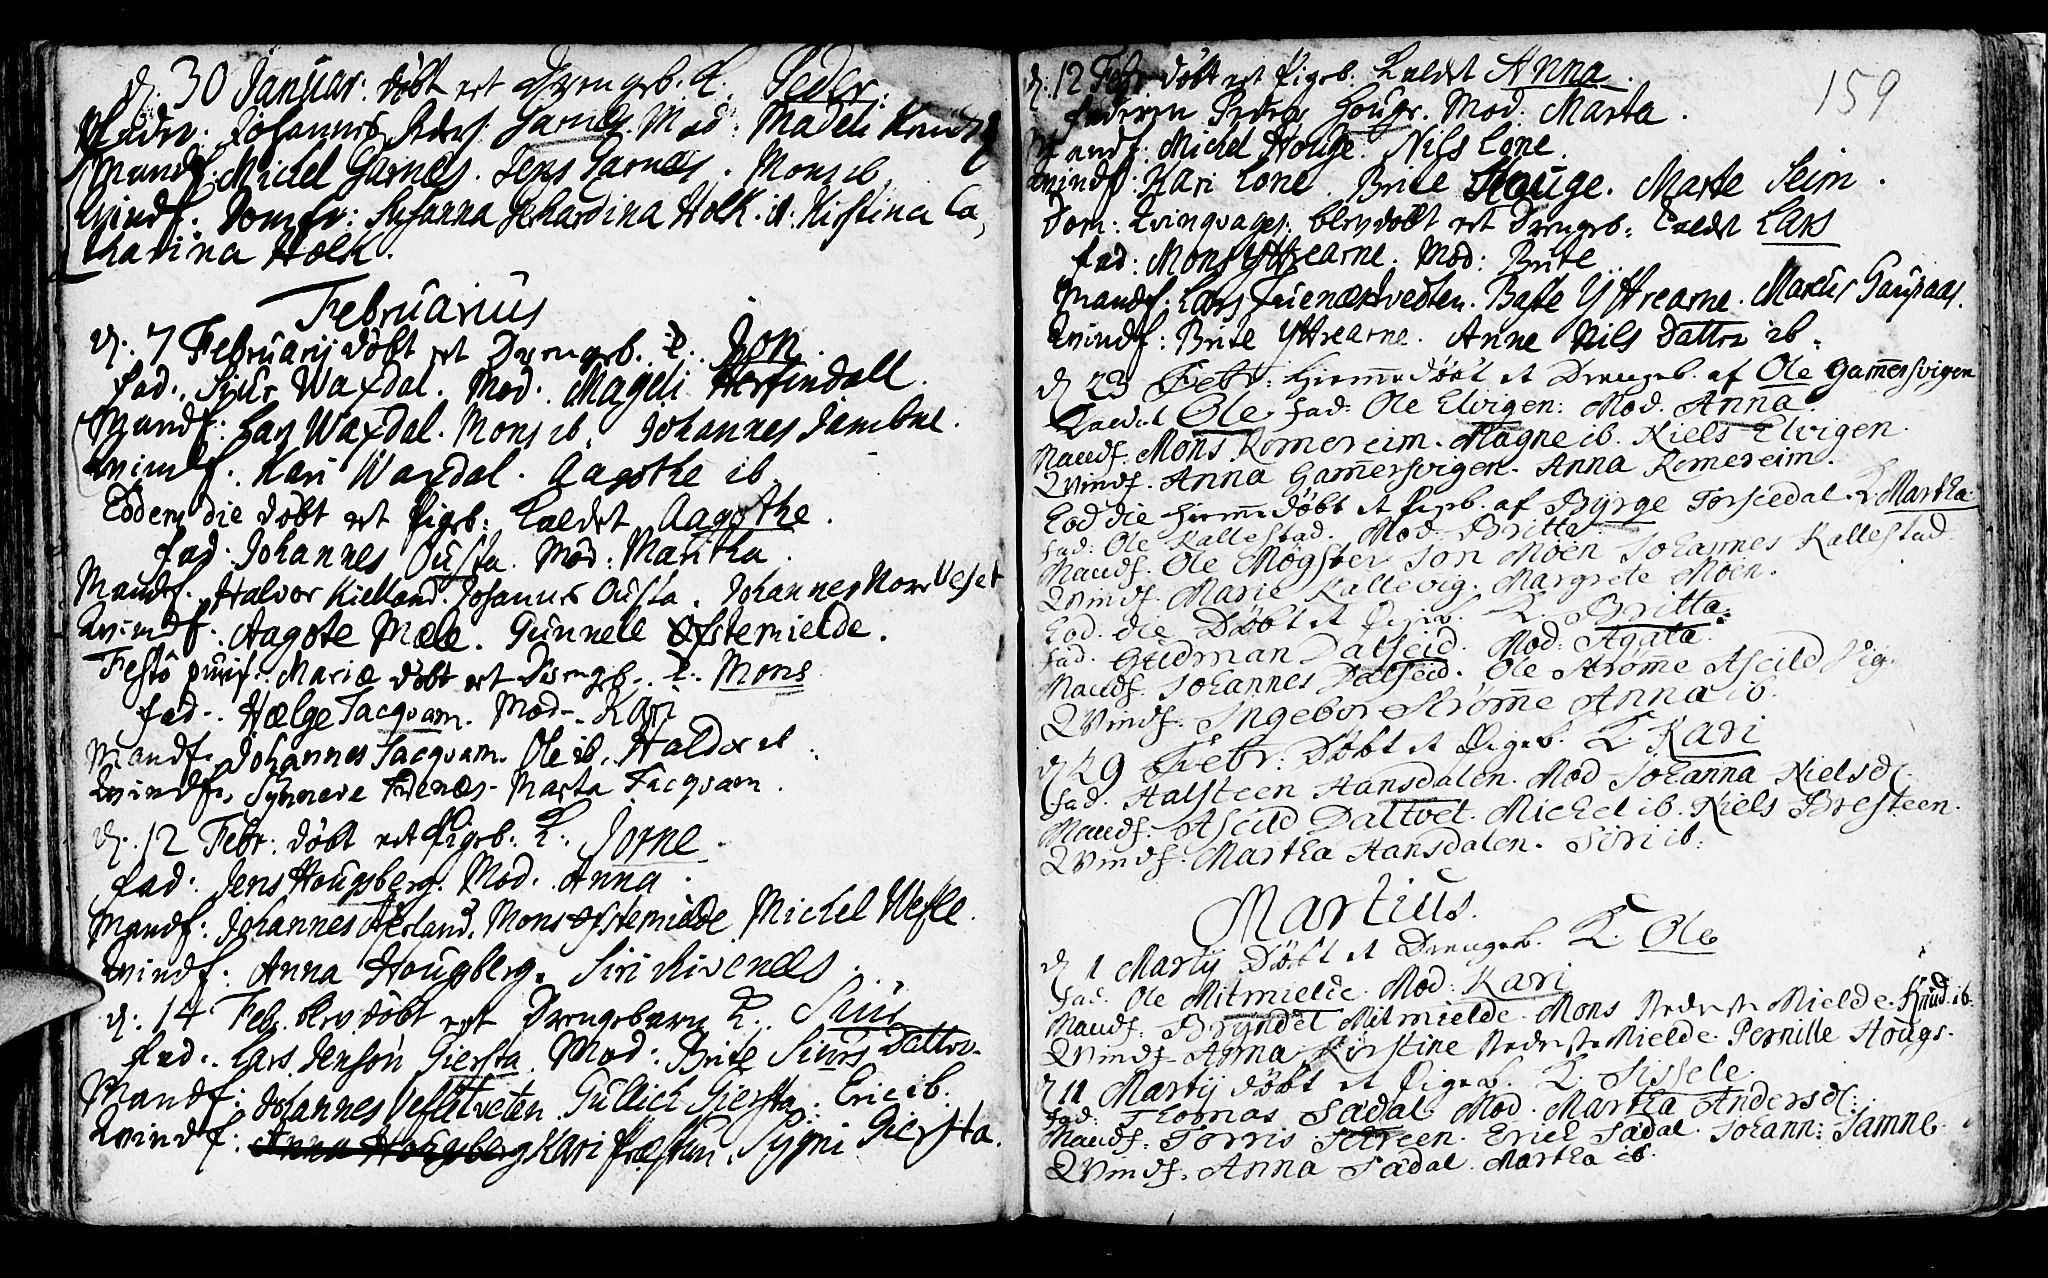 d. 30 Januar. døbt et Drengb. K. Peder.
Fader. Johannes Peders. Garnes. Mod: Madeli
Mandf. Michel Garnes. Jens Garnes. Mons ib.
Qvindf. Jomfr: Susanna Gerhardina Holk. it. Kirstina Ca,
tharina Holk.
Februarius
d. 7 Februarij døbt et Drengb. K. Jon.
fad. Siur Waxdal. Mod. Mageli Herfindall.
Mandf: Lars Waxdal. Mons ib. Johannes Jambne.
Qvindf. Kari Waxdal. Aagothe ib.
Eodem die døbt et Pigeb: Kaldet Aagothe.
fad. Johannes Ousta. Mod: Maritha.
Mandf. Halvor Kielland. Johannes Ousta. Johannes
Qvindf. Aagote Mæle. Gunnele Øfstemielde.
Festo purif: Mariæ døbt et Drengb. K. Mons
fad. Hælge Tacqvam. Mod. Kari
Mandf. Johannes Tacqvam. Ole ib. Haldor ib.
Qvindf. Synneve Edenæs. Marta Tacqvam.
d. 12 Febr: døbt et Pigeb. K. Jorne.
fad. Jens Hougsberg. Mod. Anna.
Mandf: Johannes Herland. Mons Øfstemielde Michel Wefle.
Qvindf: Anna Hougberg. Siri Rivenæs.
d. 14 Feb. blev døbt et Drengebarn K. Siur
fad. Lars Jenson Giersta. Mod: Brite Siurs Datter.
Mandf: Johannes Vefletveten Gullich Giersta. Eric ib.
Qvindf: Anna Hougberg Kari Præstun. Sygni Giersta.
159
d. 12 Febr. døbt et Pigeb. Kaldet Anna.
faderen Houge. Mod: Marta.
Mandf: Michel Houge. Nils Lone.
Qvindf. Kari Lone. Brite Houge. Marte Seim.
Dom: Qvinqvages: blev døbt et Drengeb: Kaldet Lars
fad: Mons Yttrearne. Mod: Brite
Mandf. Lars Baste Yttrearne. Marcus Gaupaas.
Qvindf: Brite Yttrearne. Anne Nils Datter ib.
d 23 Febr: hiemedøbt et Drengeb. af Ole Gam̄ersvigen
Kaldet Ole. fad. Ole Elvigen: Mod. Anna.
Mandf. Mons Romereim. Magne ib. Niels Elvigen.
Qvindf. Anna Gam̄ersvigen. Anna Romereim.
Eod die hiem̄døbt et Pigeb. af Byrge Torskedal. K. Martha
fad: Ole Kallestad. Mod. Britte.
Mandf. Ole Møgster Jon Moen Johannes Kallestad.
Qvindf. Marie Kallevig. Margrete Moen.
Eod. die Døbt et Pigeb. K. Britta.
fad. Gudman Dalseid. Mod: Agata.
Mandf. Johannes Dalseid. Ole Strøm̄e Ascild Vig.
Qvindf. Ingebor Strøm̄e Anna ib.
d 29 Febr: Døbt et Pigeb. K. Kari
fad. Aalsteen Aansdalen. Mod Johanna Nielsd.
Mandf. Ascild Daltvet. Michel ib. Niels Bresteen.
Qvindf. Martha Aansdalen. Siri ib.
Martius.
d 1 Martij Døbt et Drengeb. K. Ole
fad. Ole Mitmielde. Mod: Kari
Mandf. Bryndel Mitmielde. Mons Nederste Mielde. Knud. ib.
Qvindf. Anna Kirstine Nederste Mielde. Pernille Hougs.
d 11 Martij døbt et Pigeb. K. Sissele.
fad: Thomas Sædal. Mod. Martha Andersd.
Mandf. Torris Erich Sædal. Johann: Jamne.
Qvindf. Anna Sædal. Martha ib.